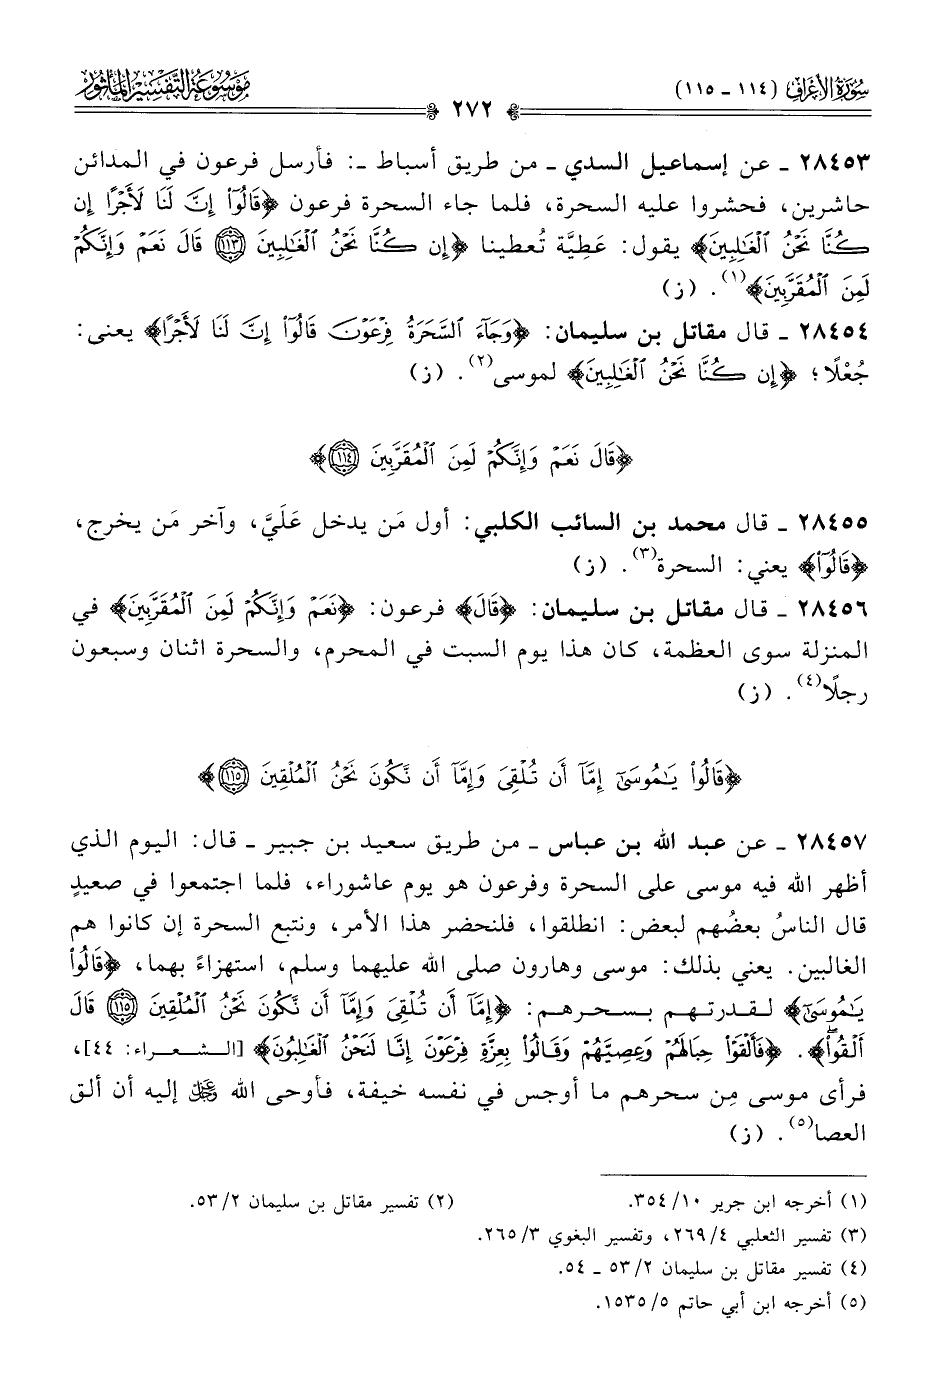 سُورَةُ الأَعْرَافِ (١١٤ - ١١٥)
٢٧٢
مَوْسُوعَةُ التَّفْسِيرِ المَأْثُورِ
٢٨٤٥٣ ـ عن إسماعيل السدي ـ من طريق أسباط ـ: فأرسل فرعون في المدائن
حاشرين، فحشروا عليه السحرة، فلما جاء السحرة فرعون ﴿قَالُوٓا۟ إِنَّ لَنَا لَأَجْرًا إِن
كُنَّا نَحْنُ ٱلْغَـٰلِبِينَ﴾ يقول: عَطِيَّة تُعطينا ﴿إِن كُنَّا نَحْنُ ٱلْغَـٰلِبِينَ ١١٣ قَالَ نَعَمْ وَإِنَّكُمْ
لَمِنَ ٱلْمُقَرَّبِينَ﴾(١). (ز)
٢٨٤٥٤ ـ قال مقاتل بن سليمان: ﴿وَجَآءَ ٱلسَّحَرَةُ فِرْعَوْنَ قَالُوٓا۟ إِنَّ لَنَا لَأَجْرًا﴾ يعني:
جُعْلًا؛ ﴿إِن كُنَّا نَحْنُ ٱلْغَـٰلِبِينَ﴾ لموسى(٢). (ز)
﴿قَالَ نَعَمْ وَإِنَّكُمْ لَمِنَ ٱلْمُقَرَّبِينَ ١١٤﴾
٢٨٤٥٥ ـ قال محمد بن السائب الكلبي: أول مَن يدخل عَلَيَّ، وآخر مَن يخرج،
﴿قَالُوٓا۟﴾ يعني: السحرة(٣). (ز)
٢٨٤٥٦ ـ قال مقاتل بن سليمان: ﴿قَالَ﴾ فرعون: ﴿نَعَمْ وَإِنَّكُمْ لَمِنَ ٱلْمُقَرَّبِينَ﴾ في
المنزلة سوى العظمة، كان هذا يوم السبت في المحرم، والسحرة اثنان وسبعون
رجلًا(٤). (ز)
﴿قَالُوا۟ يَـٰمُوسَىٰٓ إِمَّآ أَن تُلْقِىَ وَإِمَّآ أَن نَّكُونَ نَحْنُ ٱلْمُلْقِينَ ١١٥﴾
٢٨٤٥٧ ـ عن عبد الله بن عباس ـ من طريق سعيد بن جبير ـ قال: اليوم الذي
أظهر الله فيه موسى على السحرة وفرعون هو يوم عاشوراء، فلما اجتمعوا في صعيدٍ
قال الناسُ بعضُهم لبعض: انطلقوا، فلنحضر هذا الأمر، ونتبع السحرة إن كانوا هم
الغالبين. يعني بذلك: موسى وهارون صلى الله عليهما وسلم، استهزاءً بهما، ﴿قَالُوا۟
يَـٰمُوسَىٰٓ﴾ لقدرتهم بسحرهم: ﴿إِمَّآ أَن تُلْقِىَ وَإِمَّآ أَن نَّكُونَ نَحْنُ ٱلْمُلْقِينَ ١١٥ قَالَ
أَلْقُوا۟﴾. ﴿فَأَلْقَوْا۟ حِبَالَهُمْ وَعِصِيَّهُمْ وَقَالُوا۟ بِعِزَّةِ فِرْعَوْنَ إِنَّا لَنَحْنُ ٱلْغَـٰلِبُونَ﴾ [الشعراء: ٤٤]،
فرأى موسى مِن سحرهم ما أوجس في نفسه خيفة، فأوحى الله ﷿ إليه أن ألق
العصا(٥). (ز)
(١) أخرجه ابن جرير ١٠/ ٣٥٤. (٢) تفسير مقاتل بن سليمان ٢/ ٥٣.
(٣) تفسير الثعلبي ٤/ ٢٦٩، وتفسير البغوي ٣/ ٢٦٥.
(٤) تفسير مقاتل بن سليمان ٢/ ٥٣ ـ ٥٤.
(٥) أخرجه ابن أبي حاتم ٥/ ١٥٣٥.